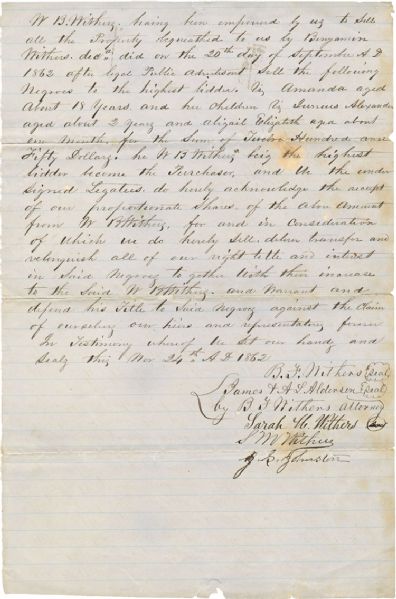 W B. Withers. having been empowered by us to Sell
all the Property Bequeathed to us by Benjamin
Withers. decd. did on the 20th day of September A D
1862 after legal Public Advertisement Sell the following
Negroes to the highest bidder Viz Amanda aged
about 18 Years. and her Children Viz Alexander
aged about 2 Years and Abigail Elizabeth aged about
one Month, for the Sum of Twelve Hundred and
Fifty Dollars. he W B Withers being the highest
bidder become the Purchaser, and We the under
signed Legatees. do hereby acknowledge the receipt
of our proportionate Shares. of the above Amount
from W B Withers. for and in Consideration
of which we do hereby Sell. deliver transfer and
relinquish all of our right title and interest
in Said Negroes to gether with their increase
to the Said W B Withers. and Warrant and
defend his Title to Said Negroes against the Claim
of ourselves our heirs and representatives forever
In Testimony whereof We Set our hands and
Seals this Nov 24th A D 1862
B. F. Withers (Seal)
James & A. L. Alderson (Seal)
by B. F Withers attorney
Sarah Withers (Seal)
S M Withers
J. Johnston